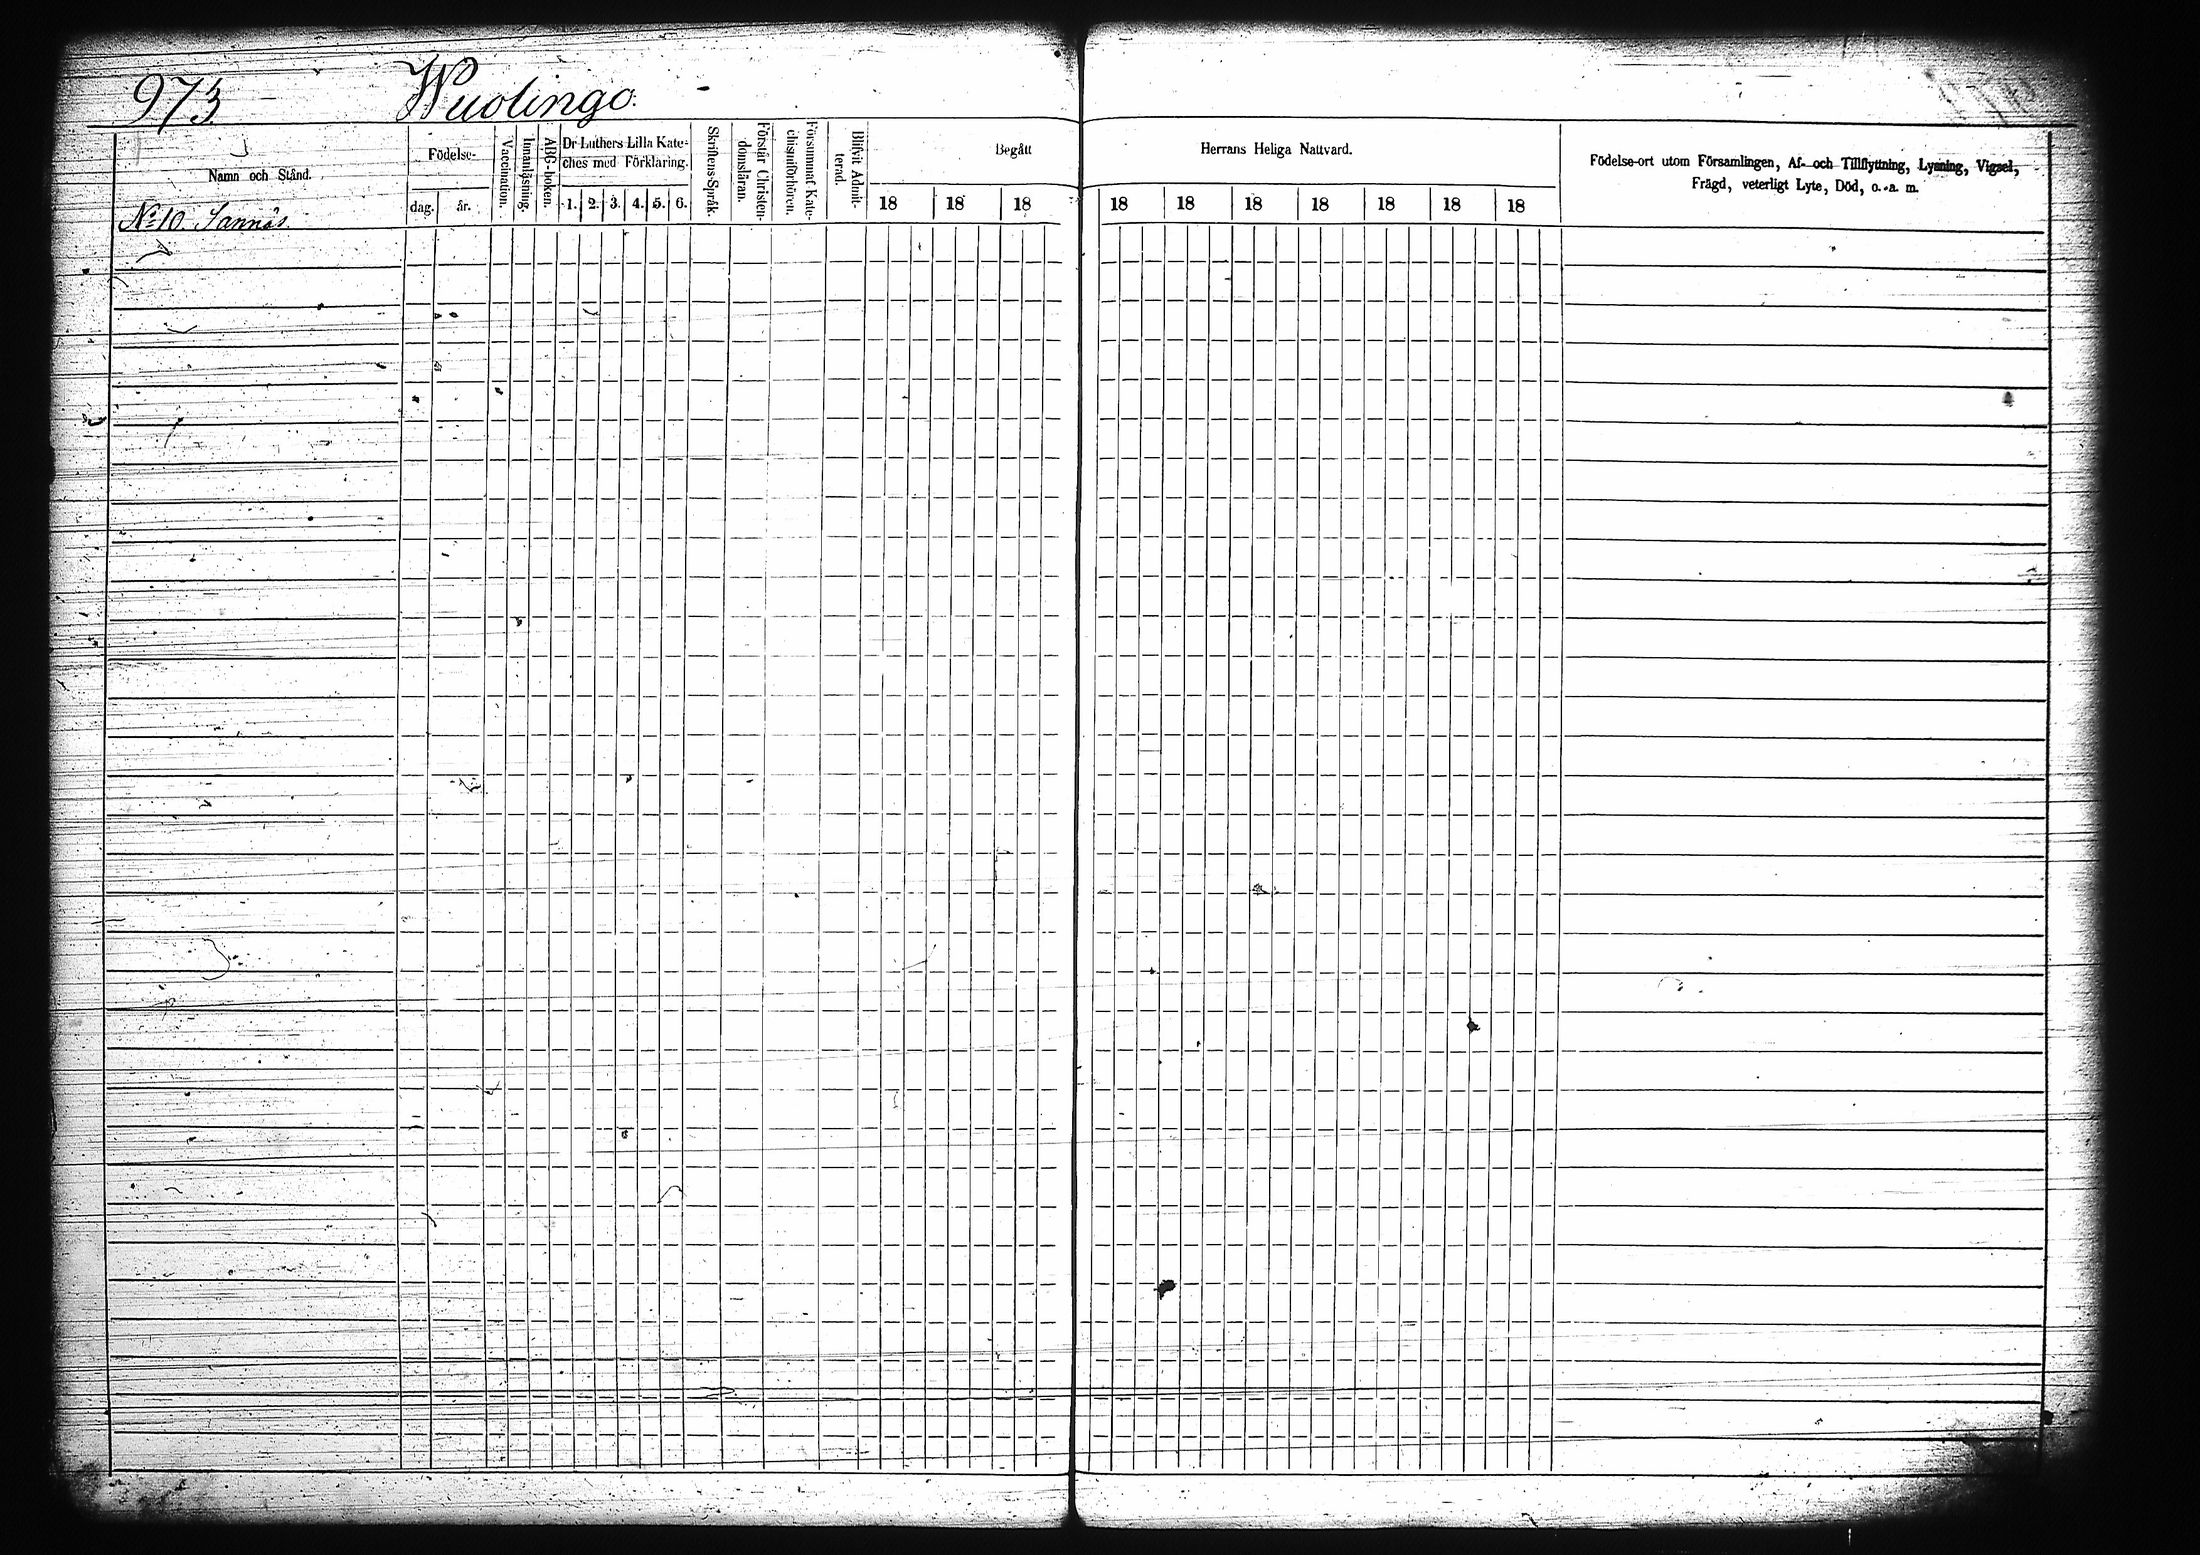 973. Wuolingo.
Namn och Stånd.
Födelse-
dag. år.
Vaccination.
Innanläsning.
ABC-boken.
Dr Luthers Lilla Kate-
ches med Förklaring.
1. 2. 3. 4. 5. 6.
Skriftens-Språk.
Förstår Christen-
domsläran.
Försummat Kate-
chismiförhören.
Blifvit Admit-
terad.
Begått Herrans Heliga Nattvard.
18 18 18 18 18 18 18 18 18 18
Födelse-ort utom Församlingen, Af- och Tillflyttning, Lysning, Vigsel,
Frägd, veterligt Lyte, Död, o. a. m.
No 10. Sannäs.